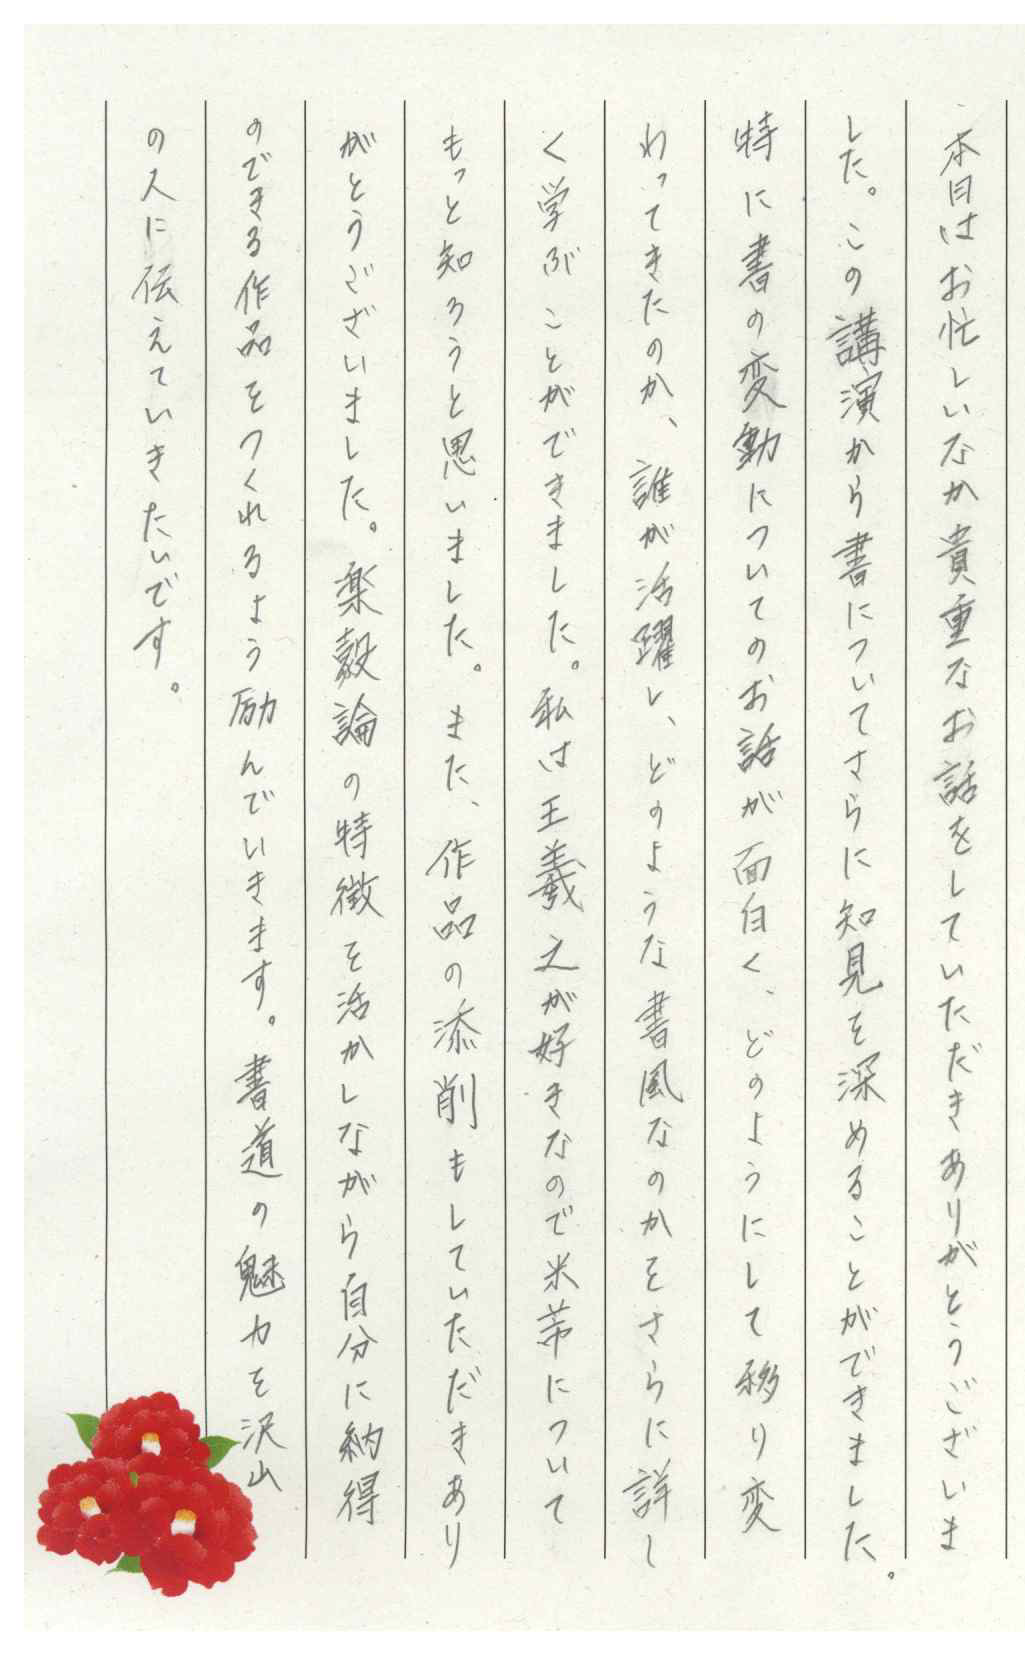 本日はお忙しいなか貴重なお話をしていただきありがとうございま
した。この講演から書についてさらに知見を深めることができました。
特に書の変動についてのお話が面白く、どのようにして移り変
わってきたのか、誰が活躍し、どのような書風なのかをさらに詳し
く学ぶことができました。私は王羲之が好きなので米芾について
もっと知ろうと思いました。また、作品の添削もしていただきあり
がとうございました。楽毅論の特徴を活かしながら自分に納得
のできる作品をつくれるよう励んでいきます。書道の魅力を沢山
の人に伝えていきたいです。